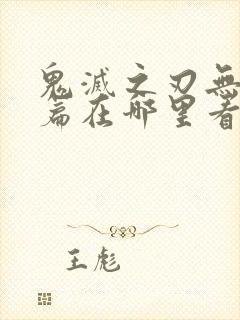 鬼滅之刃無
篇在哪里看
王彪